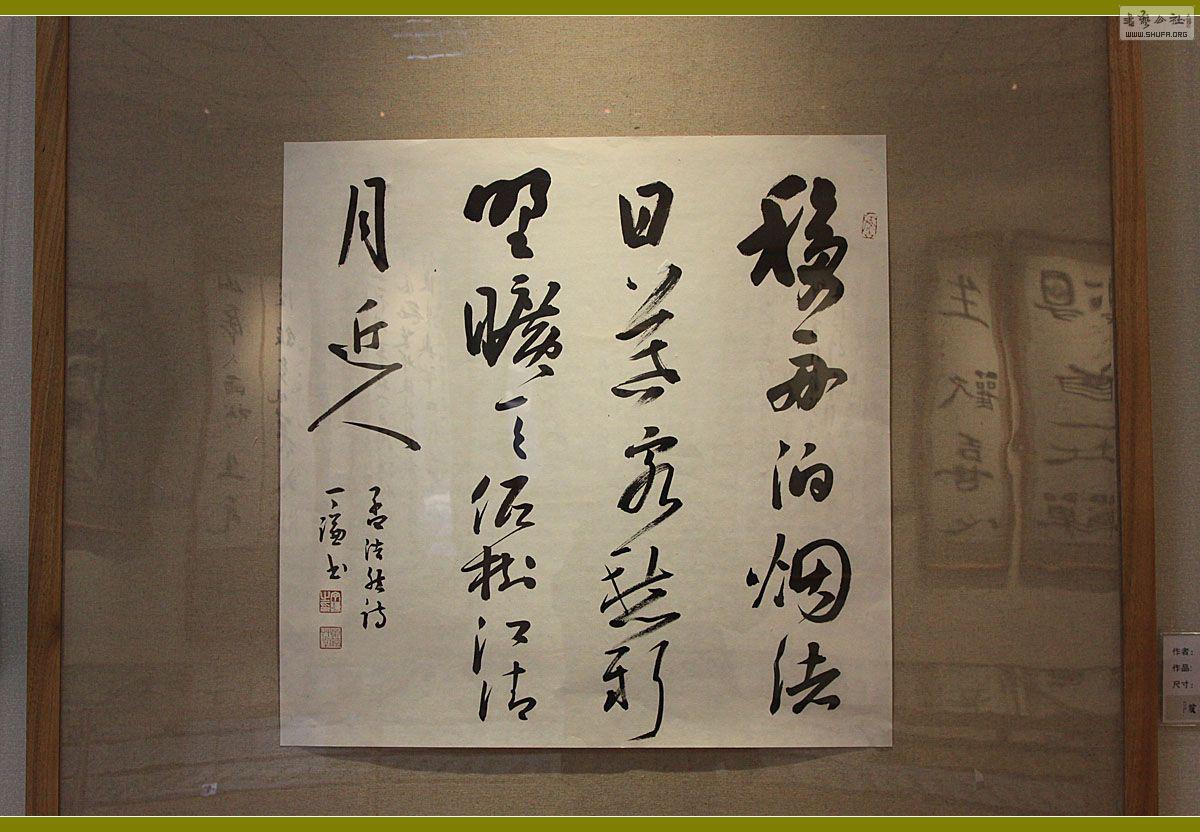 移舟泊烟渚
日暮客愁新
野曠天低樹江清
月近人
孟浩然诗
丁谦书
作者:
作品:
尺寸:
书艺公社
WWW.SHUFA.ORG